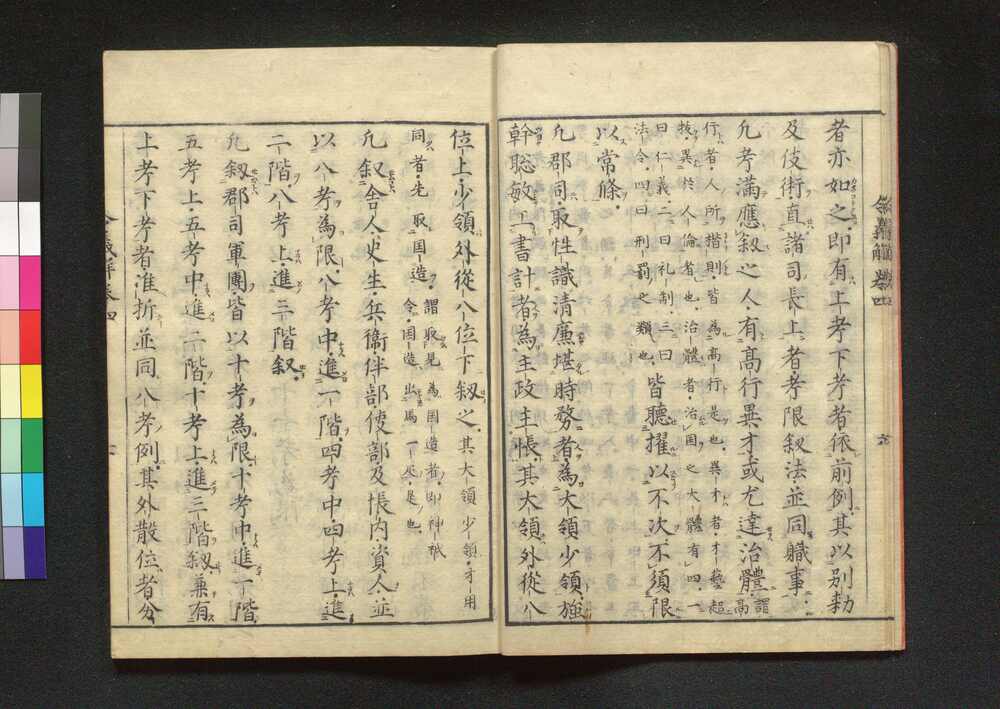 者亦如之即有上考下考者依前例其以別勅
及伎術直諸司長上者考限叙法並同職事
凢考満應叙之人有高行異才或尤達治體謂高
行者人所楷則皆為高行是也異才者才藝超
抜異於人倫者也治體者治國之大體有四一
曰仁義二曰礼制三曰
法令四曰刑罰之類也皆聽擢以不次不須限
以常條
凢郡司取性識清廉堪時務者為大領少領強
幹聡敏工書計者為主政主帳其大領外從八
位上少領外從八位下叙之其大領少領才用
同者先取国造謂取見為国造者即神祇
令国造出馬一疋是也
凢叙舎人史生兵衛伴部使部及帳内資人並
以八考為限八考中進一階四考中四考上進
二階八考上進三階叙
凢叙郡司軍團皆以十考為限十考中進一階
五考上五考中進二階十考上進三階叙兼有
上考下考者准折並同八考例其外散位者分
令義解巻四
六
令義解巻四
七